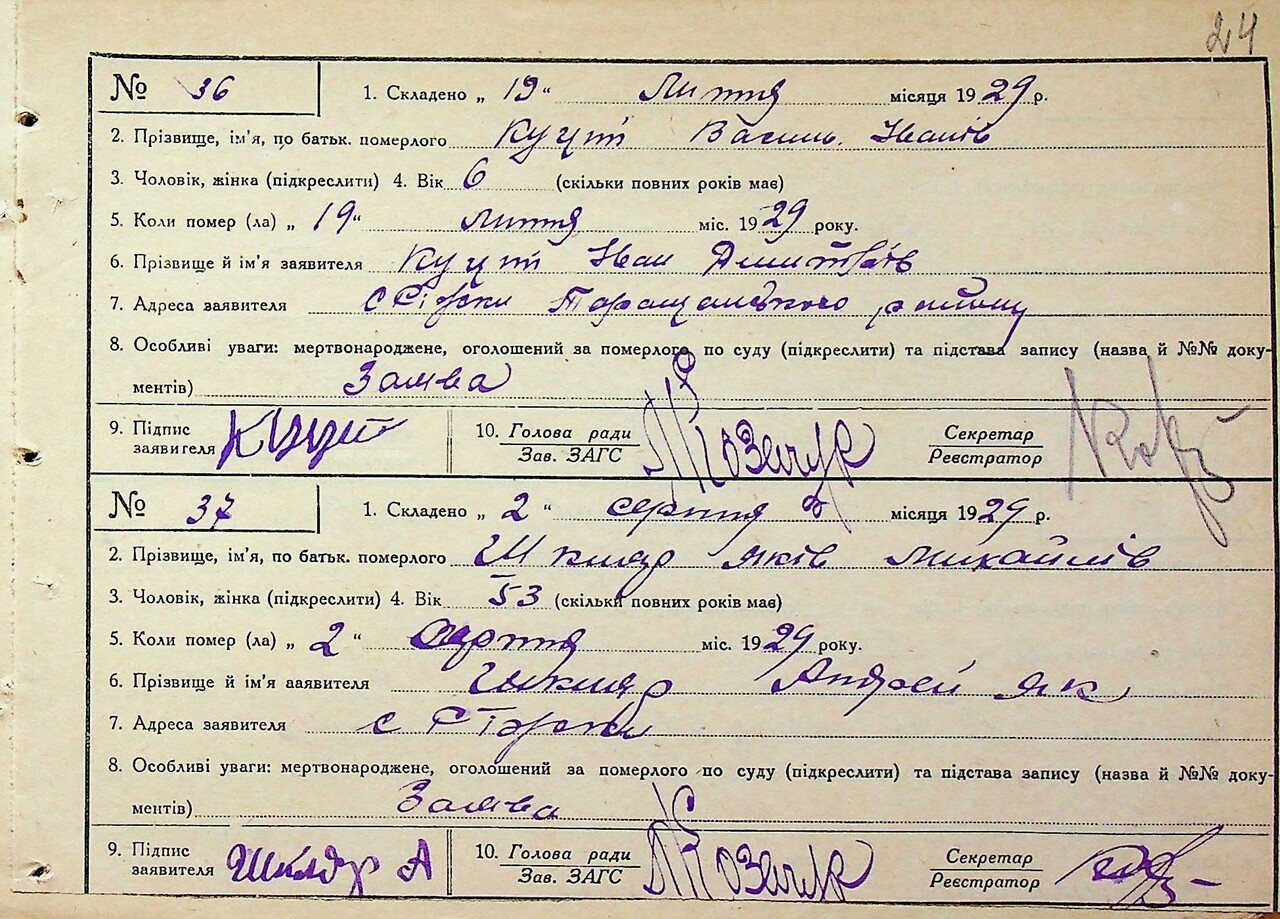 24
№ 36 1. Складено „ 19 “ Липня місяця 1929 р.
2. Прізвище, ім'я, по батьк. померлого Куций Василь Іванів
3. Чоловік, жінка (підкреслити) 4. Вік 6 (скільки повних років має)
5. Коли помер (ла) „ 19 “ липня міс. 1929 року.
6. Прізвище й ім'я заявителя Куций Іван Дмитрів
7. Адреса заявителя с Таращанського району
8. Особливі уваги: мертвонароджене, оголошений за померлого по суду (підкреслити) та підстава запису (назва й №№ доку-
ментів) Заява
9. Підпис заявителя Куций 10. Голова ради Зав. ЗАГС Секретар Реєстратор
№ 37 1. Складено „ 2 “ серпня місяця 1929 р.
2. Прізвище, ім'я, по батьк. померлого Шкляр Яків Михайлів
3. Чоловік, жінка (підкреслити) 4. Вік 53 (скільки повних років має)
5. Коли помер (ла) „ 2 “ серпня міс. 1929 року.
6. Прізвище й ім'я аявителя Шкляр Андрей Як
7. Адреса заявителя с
8. Особливі уваги: мертвонароджене, оголошений за померлого по суду (підкреслити) та підстава запису (назва й №№ доку-
ментів) Заява
9. Підпис заявителя Шкляр А 10. Голова ради Зав. ЗАГС Секретар Реєстратор